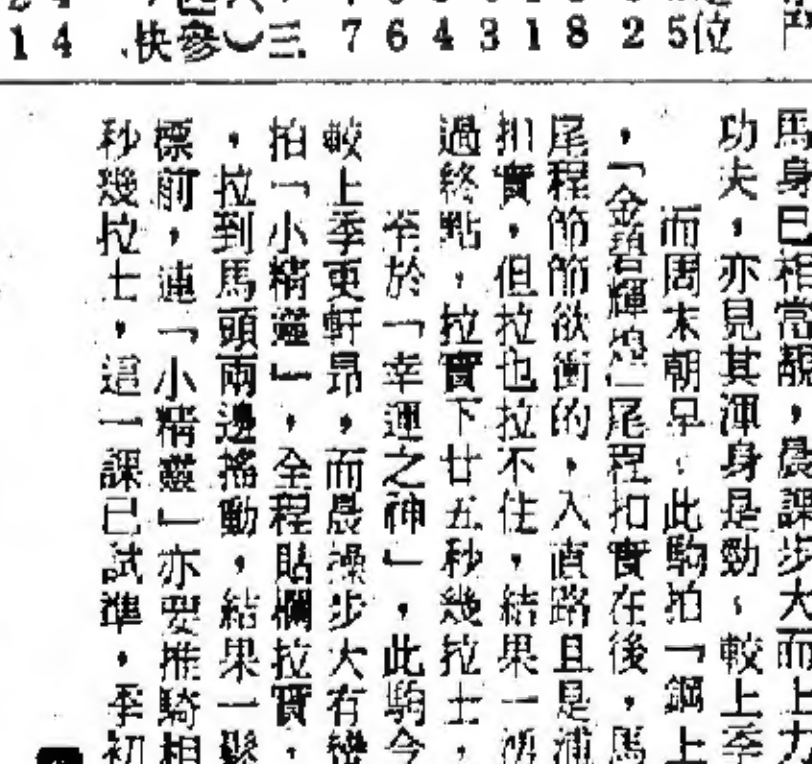 位
5
2
8
1
3
4
6
7
三
參
快
4
1
馬身已相當靚,晨課步大而上力
功夫,亦見其渾身是勁,較上季
而周末朝早,此駒拍「鋼上
,「金碧輝煌」尾程扣實在後,馬
尾程節節欲衝的,入直路且是浦
扣實,但拉也拉不住,結果一
過終點,拉實下廿五秒幾拉士,
至於「幸運之神」,此駒今
較上季更軒昂,而晨操步大有
拍「小精靈」,全程貼欄拉實,
,拉到馬頭兩邊搖動,結果一鬆
標前,連「小精靈」亦要推騎相
秒幾拉士,這一課已試準,季初